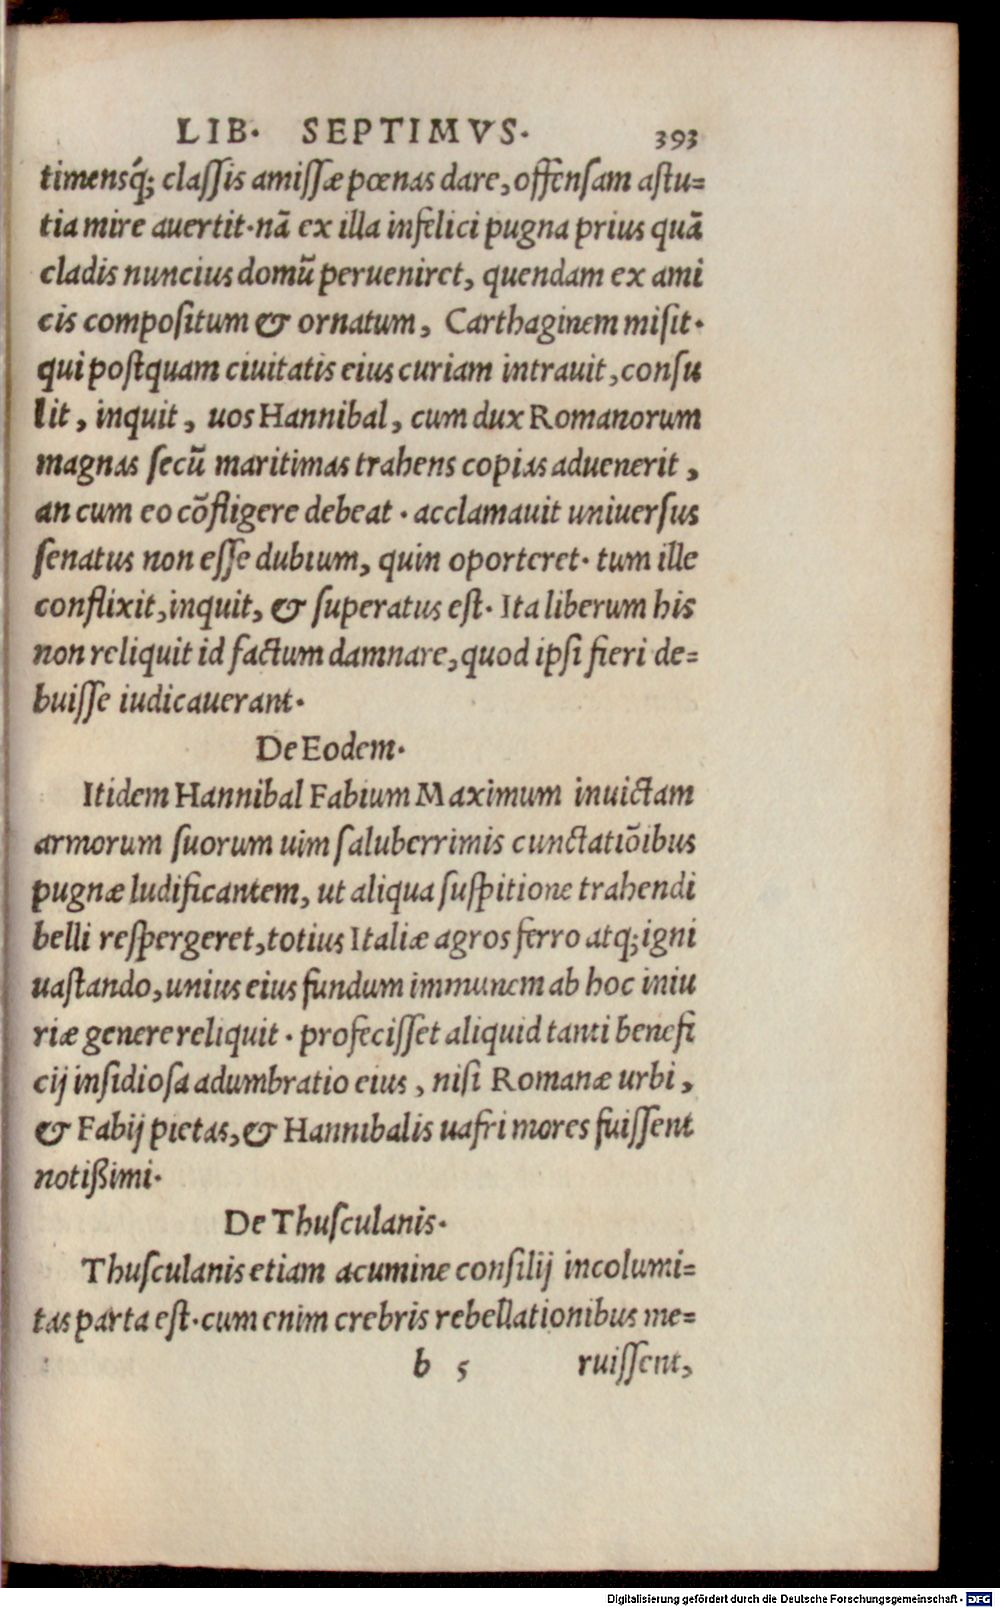 LIB. SEPTIMVS. 393
timensq́; claſſis amiſſæ pœnas dare, offenſam aſtu=
tia mire auertit. nā ex illa infelici pugna prius quā
cladis nuncius domū perueniret, quendam ex ami
cis compoſitum & ornatum, Carthaginem miſit.
qui poſtquam ciuitatis eius curiam intrauit, conſu
lit, inquit, uos Hannibal, cum dux Romanorum
magnas ſecū maritimas trahens copias aduenerit,
an cum eo cōfligere debeat. acclamauit uniuerſus
ſenatus non eſſe dubium, quin oporteret. tum ille
conflixit, inquit, & ſuperatus eſt. Ita liberum his
non reliquit id factum damnare, quod ipſi fieri de=
buiſſe iudicauerant.
De Eodem.
Itidem Hannibal Fabium Maximum inuictam
armorum ſuorum uim ſaluberrimis cunctatiōibus
pugnæ ludificantem, ut aliqua ſuſpitione trahendi
belli reſpergeret, totius Italiæ agros ferro atq; igni
uaſtando, unius eius fundum immunem ab hoc iniu
riæ genere reliquit. profeciſſet aliquid tanti benefi
cij inſidioſa adumbratio eius, niſi Romanæ urbi,
& Fabij pietas, & Hannibalis uafri mores fuiſſent
notißimi.
De Thuſculanis.
Thuſculanis etiam acumine conſilij incolumi=
tas parta eſt. cum enim crebris rebellationibus me=
b 5 ruiſſent,
Digitalisierung gefördert durch die Deutsche Forschungsgemeinschaft - DFG